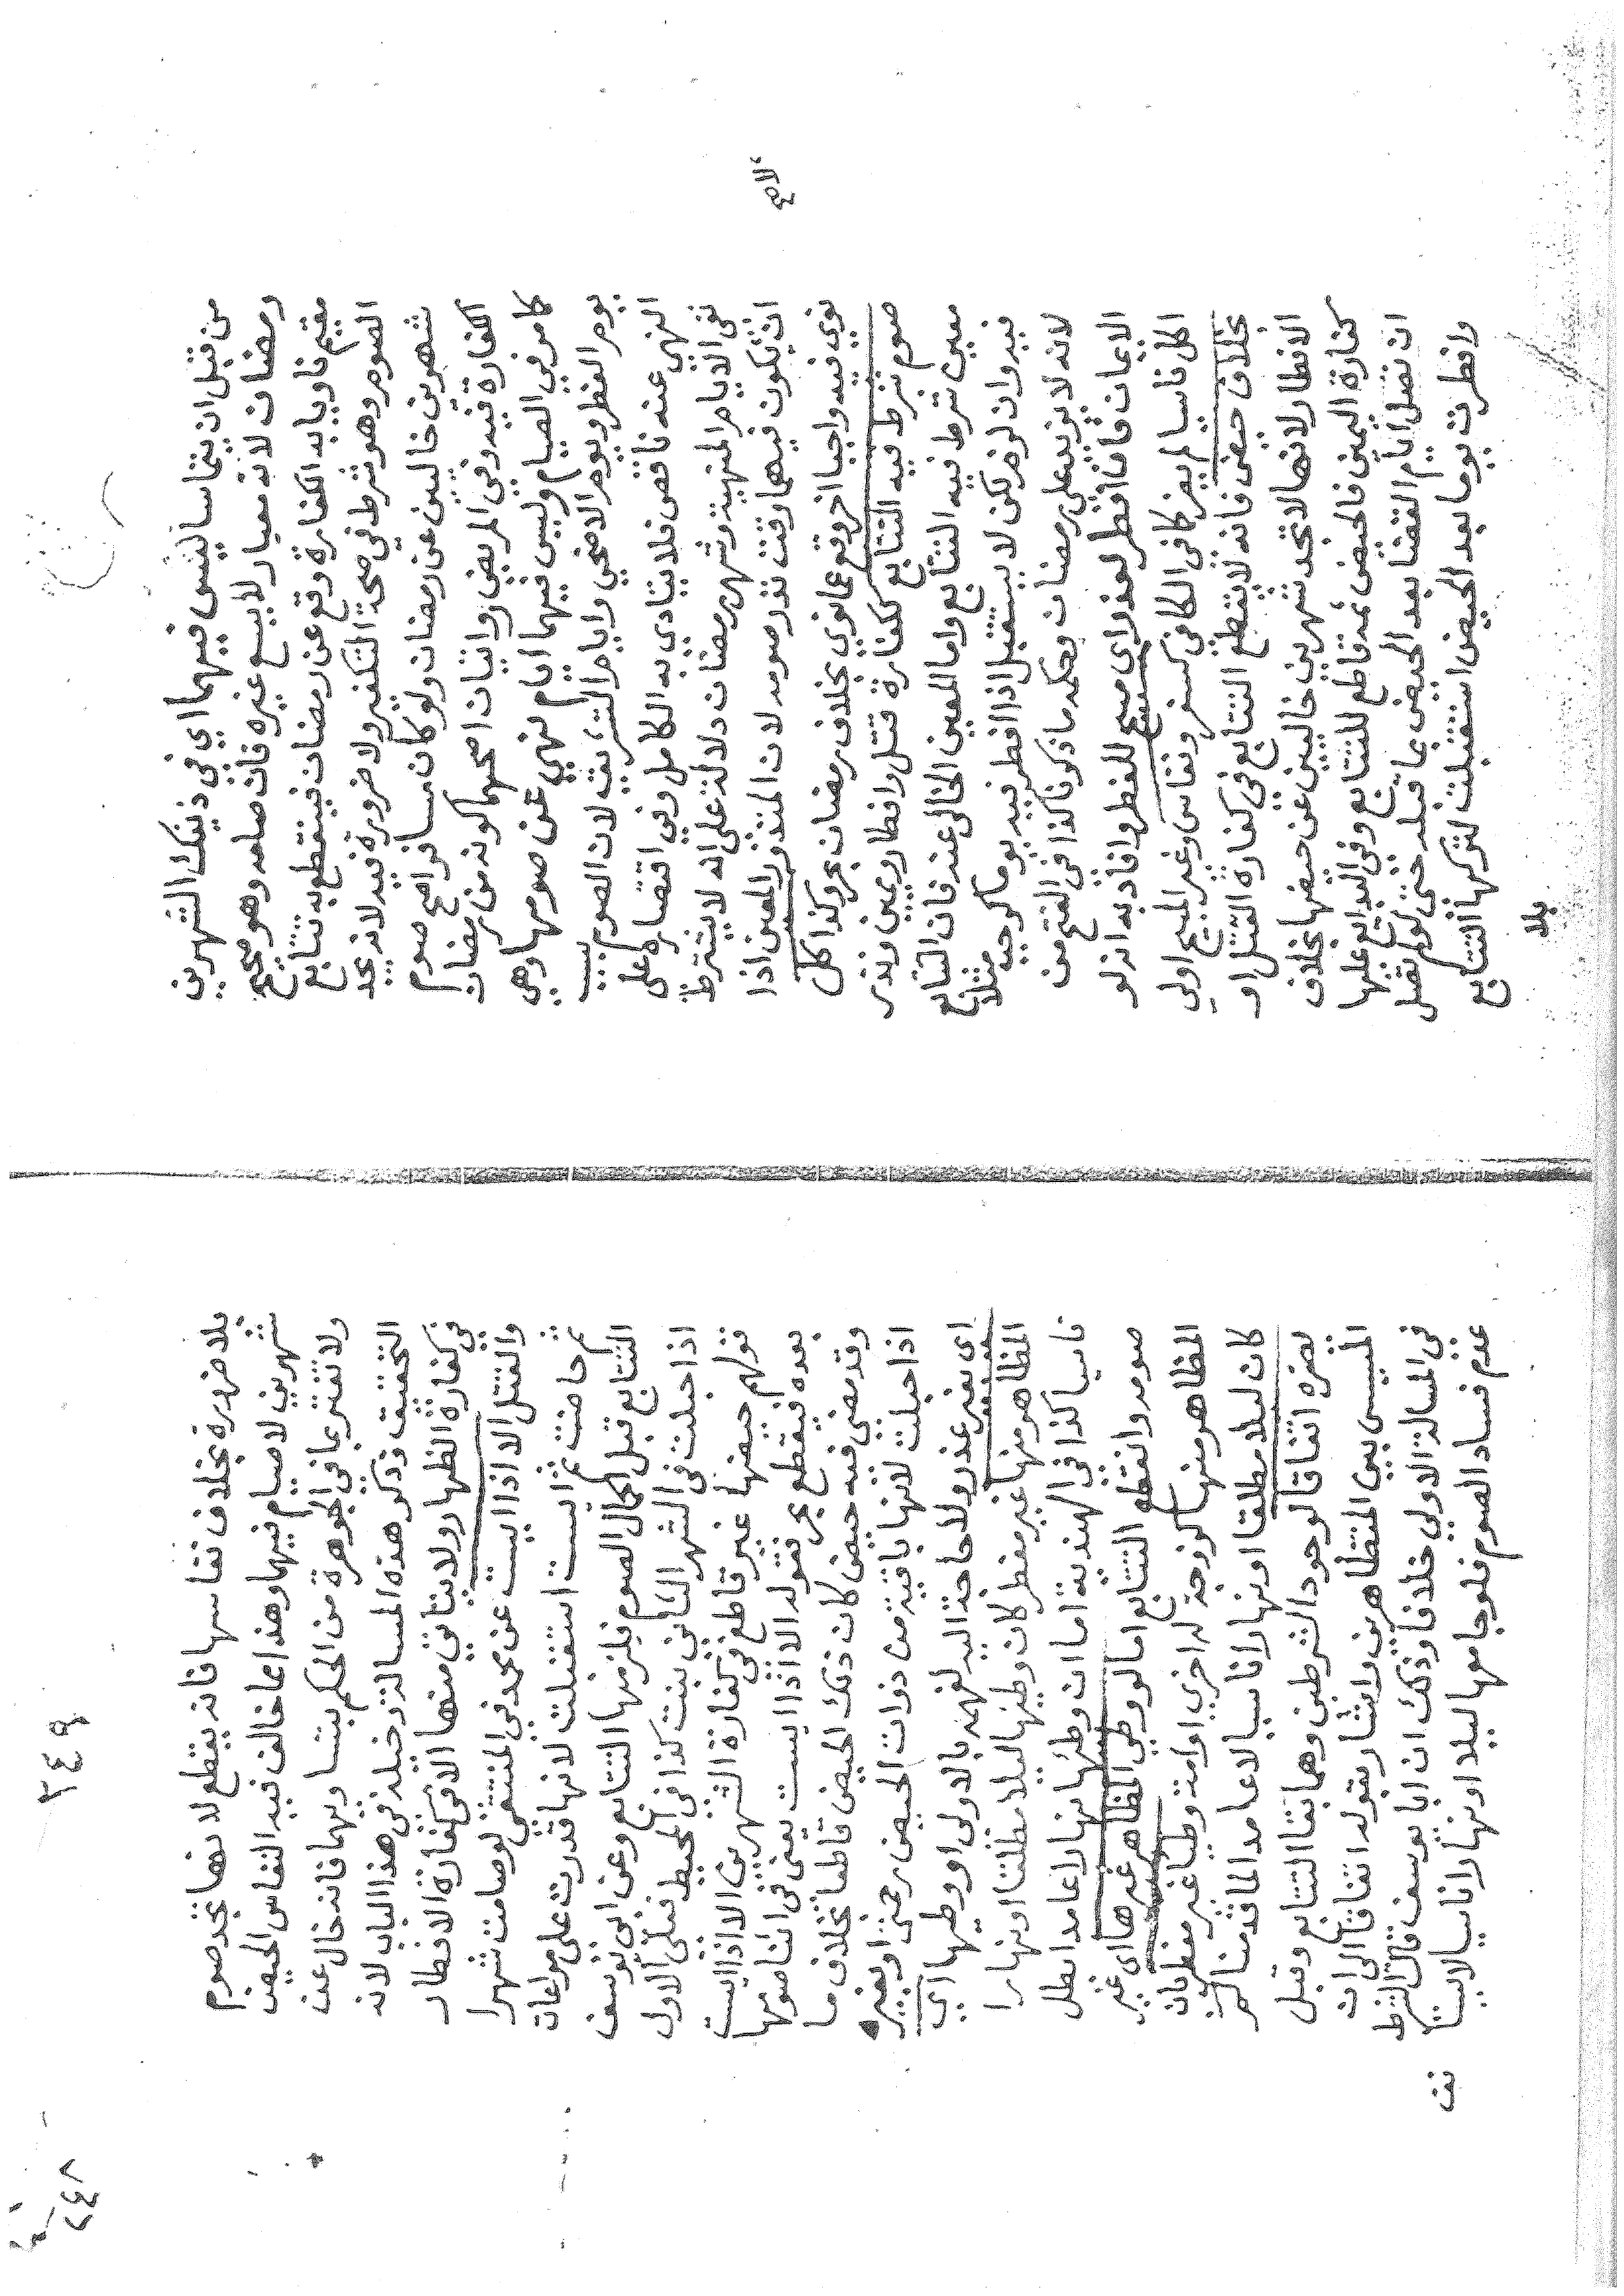 من قبل ان يتماسا ليس فيهما اي في ذينك الشهرين
رمضان لانه معيار لا يسع غيره فان صامه وهو صحيح
مقيم ناويا به الكفارة وقع عن رمضان فينقطع به تتابع
الصوم وهو شرط في صحة التكفير ولا ضرورة فيه لانه يجد
شهرين خاليين عن رمضان ولو كان مسافرا صح صوم
الكفارة فيه وفي المريض روايتان اصحهما كونه من رمضان
كما مر في الصيام وليس فيهما ايام نهي عن صومها وهي
يوم الفطر ويوم الاضحي وايام التشريق لان الصوم بسبب
النهي عنه ناقص فلا يتادي به الكامل وفي اقتصاره علي
نفي الايام المنهية وشهر رمضان دلالة علي انه لا يشترط
ان يكون فيهما وقت نذر صومه لان المنذور المعين اذا
نوي فيه واجبا اخر وقع عما نوي بخلاف رمضان بحر وكذا كل
صوم شرط فيه التتابع ككفارة قتل وافطار ويمين ونذر
معين شرط فيه التتابع واما المعين الخالي عنه فان التتابع
فيه وان لزم لكن لا يستقبل اذا افطر فيه يوما كرجب مثلا
لانه لا يزيد علي رمضان وحكمه ما ذكرنا كذا في الفتح من
الايمان فان افطر لعذر اي مبيح للفطر وافاد به انه لو
اكل ناسيا لم يضر كما في الكافي كسفر ونفاس وغير المبيح اولي
بخلاف حيض فانه لا يقطع التتابع في كفارة القتل او
الافطار لانها لا تجد شهرين خاليين عن حيضها بخلاف
كفارة اليمين فالحيض ثمه قاطع للتتابع وفي البدايع عليها
ان تصل ايام القضا بعد الحيض بما قبله حتي لو لم تصل
وافطرت يوما بعد الحيض استقبلت لتركها التتابع
بلا
٢٤٩
بلا ضرورة بخلاف نفاسها فانه يقطع لانها تجد صوم
شهرين لا صيام فيهما وهذا مما خالف فيه النفاس الحيض
ولا تغتر بما في الجوهرة من الحكم بتساويهما فانه خال عن
التحقيق وذكر هذه المسالة دخيلة في هذا الباب لانه
في كفارة الظهار ولا يتاتي منها الا في كفارة الافطار
والقتل الا اذا ايست عن محمد في المنتقي لو صامت شهرا
ثم حاضت ثم ايست استقبلت لانها قدرت علي مراعاة
التتابع قبل اكمال الصوم فلزمها التتابع وعن ابي يوسف
اذا حبلت في الشهر الثاني بنت كذا في المحيط فعلي الاول
قولهم حيضها غير قاطع في كفارة الشهرين الا اذا ايست
بعده فيقطع بحر فقوله الا اذا ايست يعني في اثنا صومها
وقد مضي فيه حيض كان ذلك الحيض قاطعا بخلاف ما
اذا حبلت لانها باقية من ذوات الحيض رحمتي او بغيره
اي بغير عذر ولا حاجة اليه لفهمه بالاولي او وطيها اي
المظاهر منها غير مفطر كان وطيها ليلا مطلقا او نهارا
ناسيا كذا في الهندية اما ان وطئها نهارا عامدا بطل
صومه وانقطع التتابع اما لو وطي المظاهر غيرها اي غير
المظاهر منها كزوجة له اخري او امته وطئا غير مفطر بان
كان ليلا مطلقا او نهارا ناسيا لا عامدا لما قدمنا لم
يضره اتفاقا لوجود الشرطين وهما بقا التتابع وقبل
المسيس بين المتظاهرين واشار بقوله اتفاقا الي ان
في المسالة الاولي خلافا وذلك ان ابا يوسف قال الشرط
عدم فساد الصوم فلو جامعها ليلا او نهارا ناسيا لا يستا
نف
٢٤٨